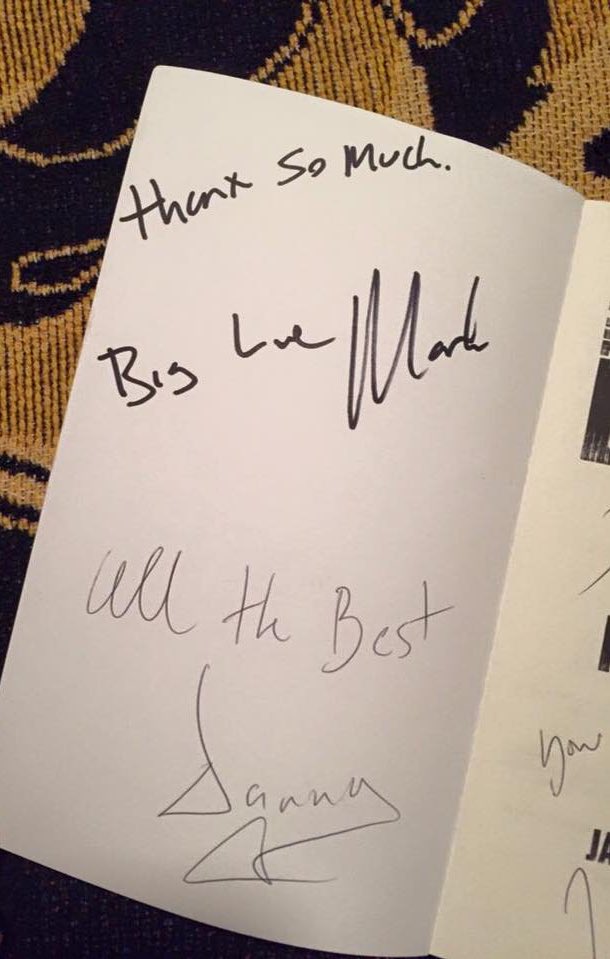 Thanx So Much.
Big Love Mark
All the Best
Danny
you
JA